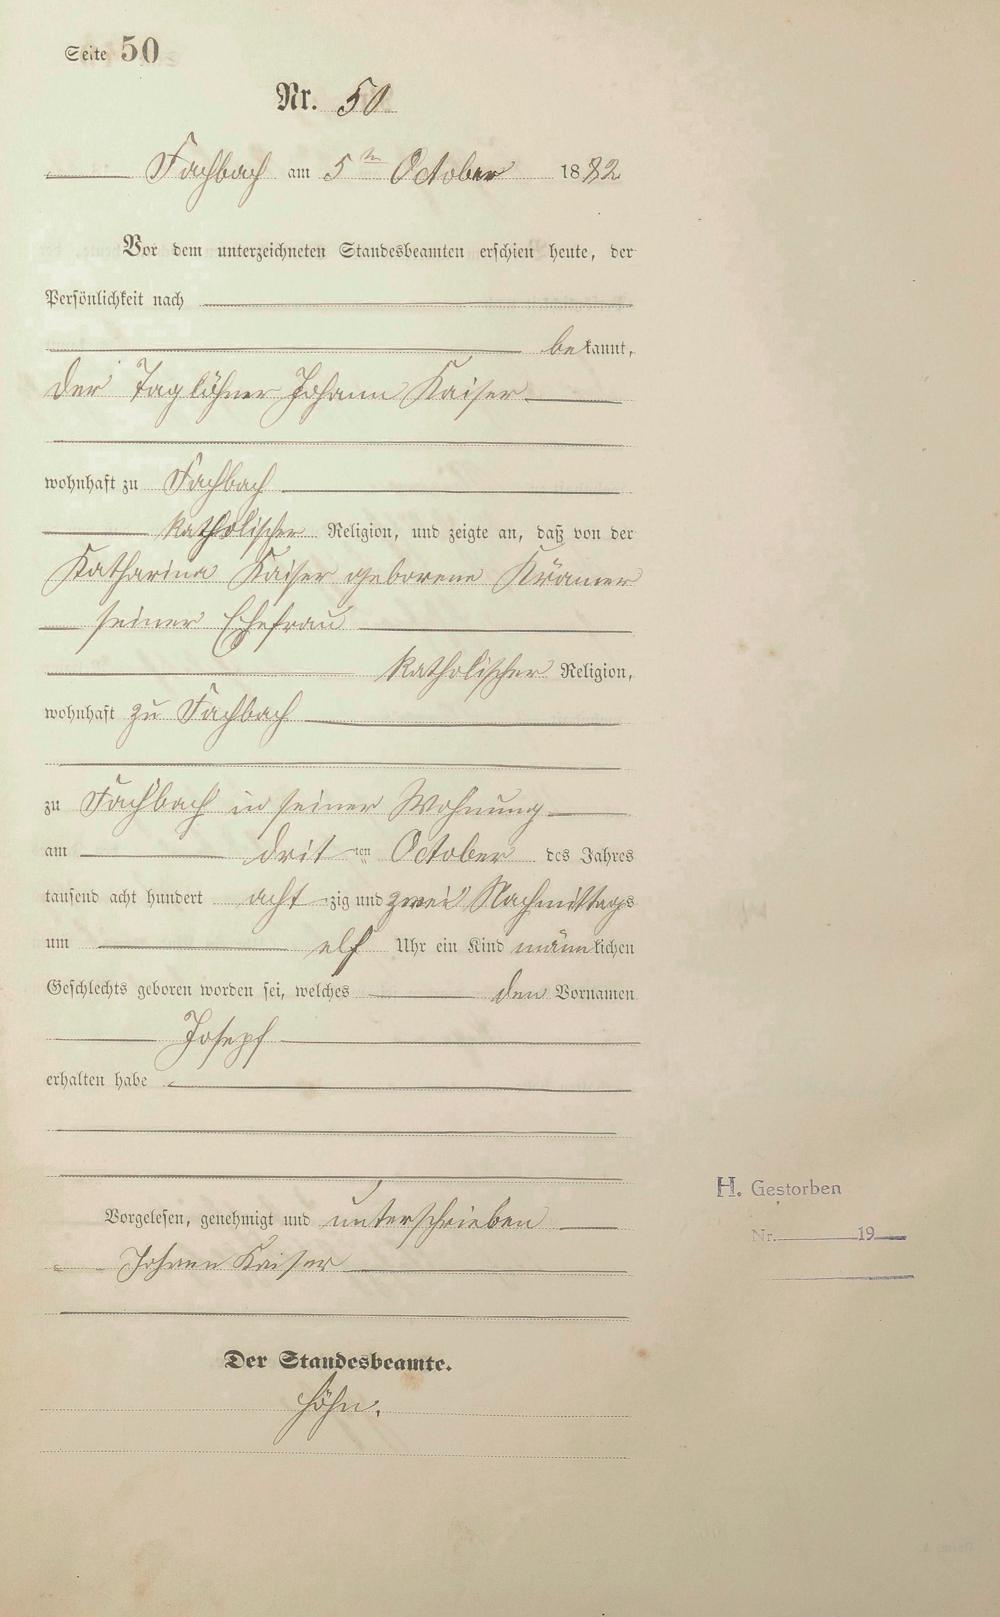 Seite 50
Nr. 50
Fachbach am 5ten October 1882
Vor dem unterzeichneten Standesbeamten erschien heute, der
Persönlichkeit nach
bekannt,
der Taglöhner Johann Kaiser
wohnhaft zu Fachbach
katholischer Religion, und zeigte an, daß von der
Katharina Kaiser geborene Krämer
seiner Ehefrau
katholischer Religion,
wohnhaft zu Fachbach
zu Fachbach in seiner Wohnung
am dritten October des Jahres
tausend acht hundert achtzig und zwei Nachmittags
um elf Uhr ein Kind männlichen
Geschlechts geboren worden sei, welches den Vornamen
Josepf
erhalten habe
Vorgelesen, genehmigt und unterschrieben
Johann Kaiser
Der Standesbeamte.
Höhn.
H. Gestorben
Nr. 19